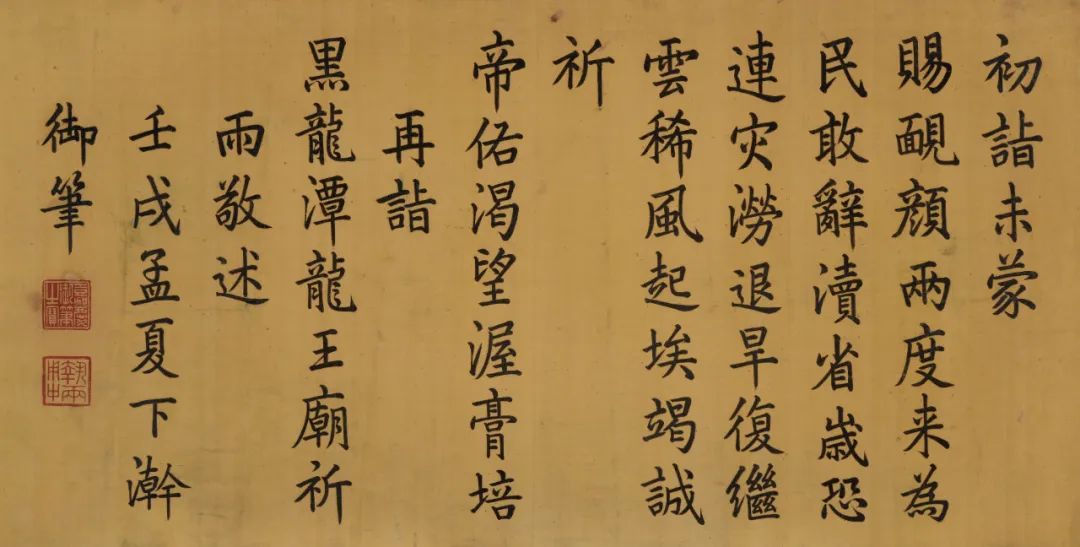 初詣未蒙
賜靦顔兩度来為
民敢辭瀆省歲恐
連灾澇退旱復繼
雲稀風起埃竭誠
祈
帝佑渴望渥膏培
再詣
黒龍潭龍王廟祈
雨敬述
壬戌孟夏下澣
御筆
嘉慶御筆之寶
執兩用中